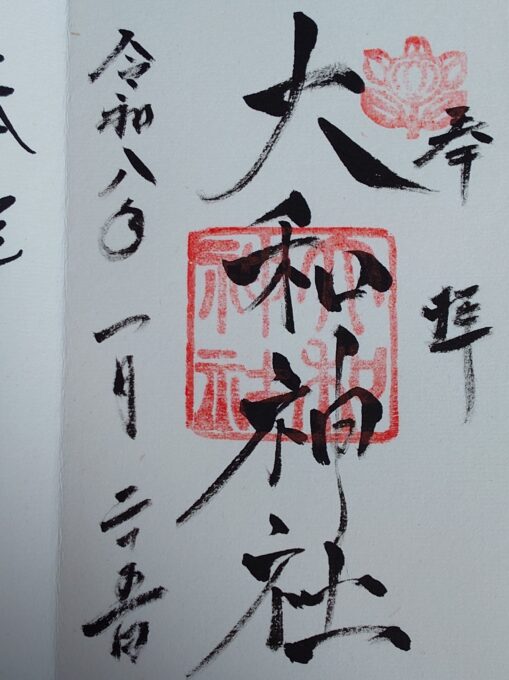 奉拝
大和神社
大和神社
令和八年一月二十五日